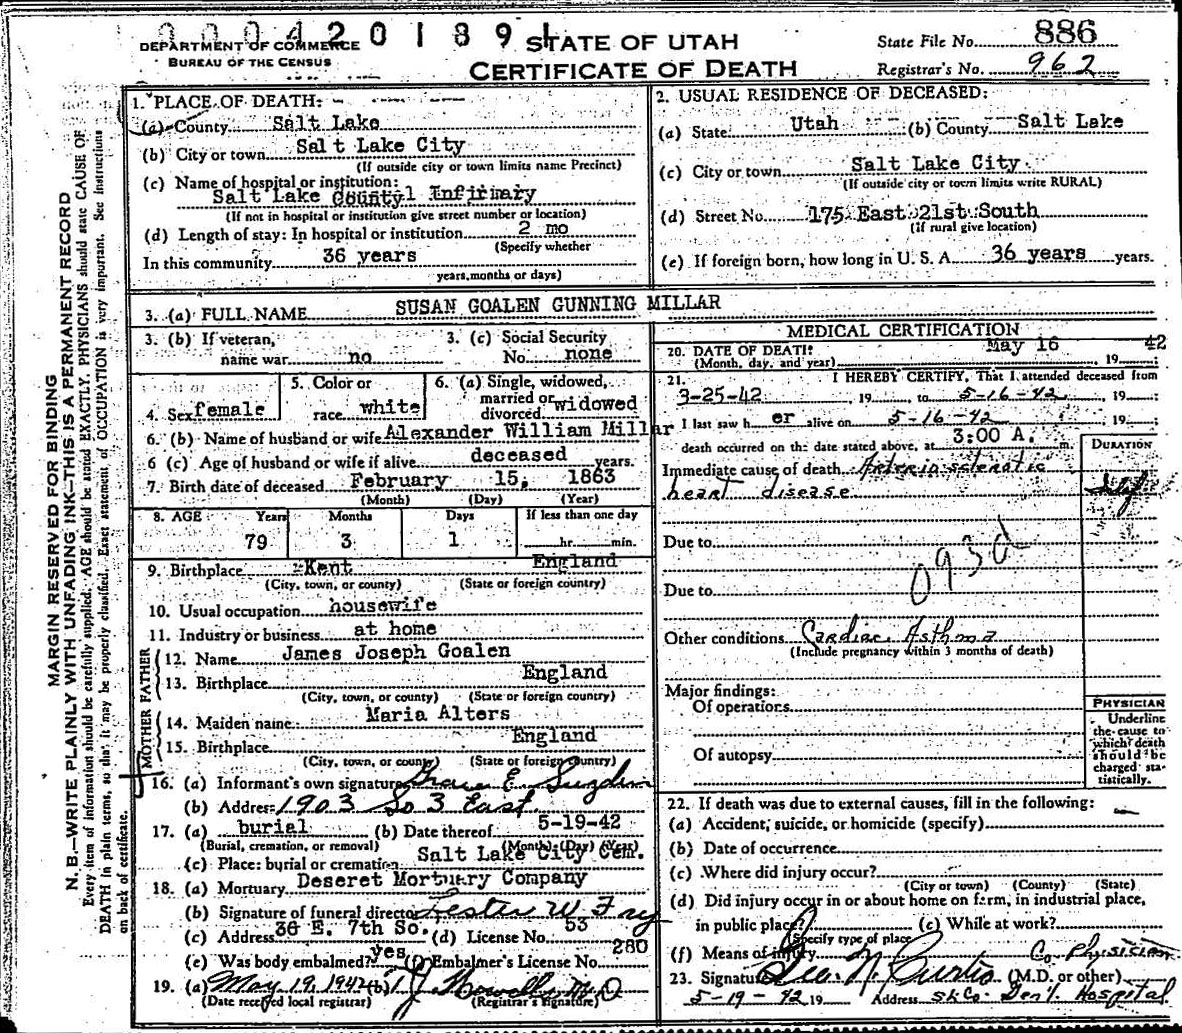 00042018
DEPARTMENT OF COMMERCE
BUREAU OF THE CENSUS
STATE OF UTAH
CERTIFICATE OF DEATH
State File No. 886
Registrar's No. 962
MARGIN RESERVED FOR BINDING
N. B.—WRITE PLAINLY WITH UNFADING INK—THIS IS A PERMANENT RECORD
Every item of information should be carefully supplied. AGE should be stated EXACTLY. PHYSICIANS should state CAUSE OF
DEATH in plain terms, so that it may be properly classified. Exact statement of OCCUPATION is very important. See Instructions
on back of certificate.
1. PLACE OF DEATH:
(a) County Salt Lake
(b) City or town Salt Lake City
(If outside city or town limits name Precinct)
(c) Name of hospital or institution:
Salt Lake County Infirmary
(If not in hospital or institution give street number or location)
(d) Length of stay: In hospital or institution 2 mo
(Specify whether
In this community 36 years
years, months or days)
2. USUAL RESIDENCE OF DECEASED:
(a) State Utah (b) County Salt Lake
(c) City or town Salt Lake City
(If outside city or town limits write RURAL)
(d) Street No. 175 East 21st South
(If rural give location)
(e) If foreign born, how long in U. S. A. 36 years years.
3. (a) FULL NAME SUSAN GOALEN GUNNING MILLAR
3. (b) If veteran,
name war no
3. (c) Social Security
No. none
4. Sex female
5. Color or
race white
6. (a) Single, widowed,
married or
divorced widowed
6. (b) Name of husband or wife Alexander William Millar
6 (c) Age of husband or wife if alive deceased years.
7. Birth date of deceased February 15, 1863
(Month) (Day) (Year)
8. AGE Years Months Days If less than one day
79 3 1 hr. min.
9. Birthplace Kent England
(City, town, or county) (State or foreign country)
10. Usual occupation housewife
11. Industry or business at home
FATHER
12. Name James Joseph Goalen
13. Birthplace England
(City, town, or county) (State or foreign country)
MOTHER
14. Maiden name Maria Alters
15. Birthplace England
(City, town, or county) (State or foreign country)
16. (a) Informant's own signature Grace E.
(b) Address 1903 So 3 East
17. (a) burial (b) Date thereof 5-19-42
(Burial, cremation, or removal) (Month) (Day) (Year)
(c) Place: burial or cremation Salt Lake City Cem.
18. (a) Mortuary Deseret Mortuary Company
(b) Signature of funeral director Lester W Fry
(c) Address 36 E. 7th So. (d) License No. 53
(e) Was body embalmed? yes (f) Embalmer's License No. 280
19. (a) May 19, 1942 (b) M.D
(Date received local registrar) (Registrar's signature)
MEDICAL CERTIFICATION
20. DATE OF DEATH: May 16, 19 42
(Month, day, and year)
21. I HEREBY CERTIFY, That I attended deceased from
3-25-42, 19 to 5-16-42, 19
I last saw h er alive on 5-16-42 19
death occurred on the date stated above, at 3:00 A. m.
DURATION
Immediate cause of death Arteriosclerotic
heart disease
Due to
093d
Due to
Other conditions Cardiac Asthma
(Include pregnancy within 3 months of death)
Major findings:
Of operations
Of autopsy
PHYSICIAN
Underline
the cause to
which death
should be
charged sta-
tistically.
22. If death was due to external causes, fill in the following:
(a) Accident, suicide, or homicide (specify)
(b) Date of occurrence
(c) Where did injury occur?
(City or town) (County) (State)
(d) Did injury occur in or about home on farm, in industrial place,
in public place? (e) While at work?
(Specify type of place)
(f) Means of injury Co. Physician
23. Signature Geo. N. Curtis (M.D. or other)
5-19-42 19 Address S.L.Co. Gen'l. Hospital